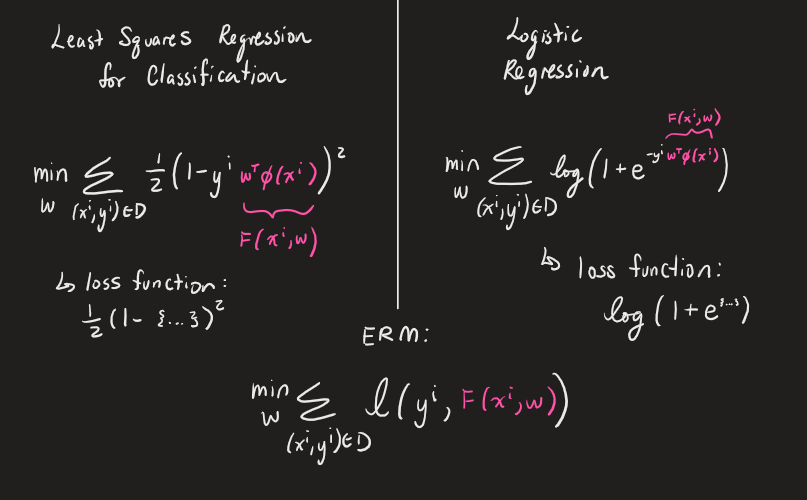 Least Squares Regression
for Classification
min_w Σ_{(xⁱ,yⁱ)∈D} ½(1-yⁱ wᵀφ(xⁱ))²
F(xⁱ;w)
↳ loss function:
½(1- {...})²
Logistic
Regression
F(xⁱ;w)
min_w Σ_{(xⁱ,yⁱ)∈D} log(1+e^{-yⁱ wᵀφ(xⁱ)})
↳ loss function:
log(1+e^{{...}})
ERM:
min_w Σ_{(xⁱ,yⁱ)∈D} l(yⁱ, F(xⁱ;w))